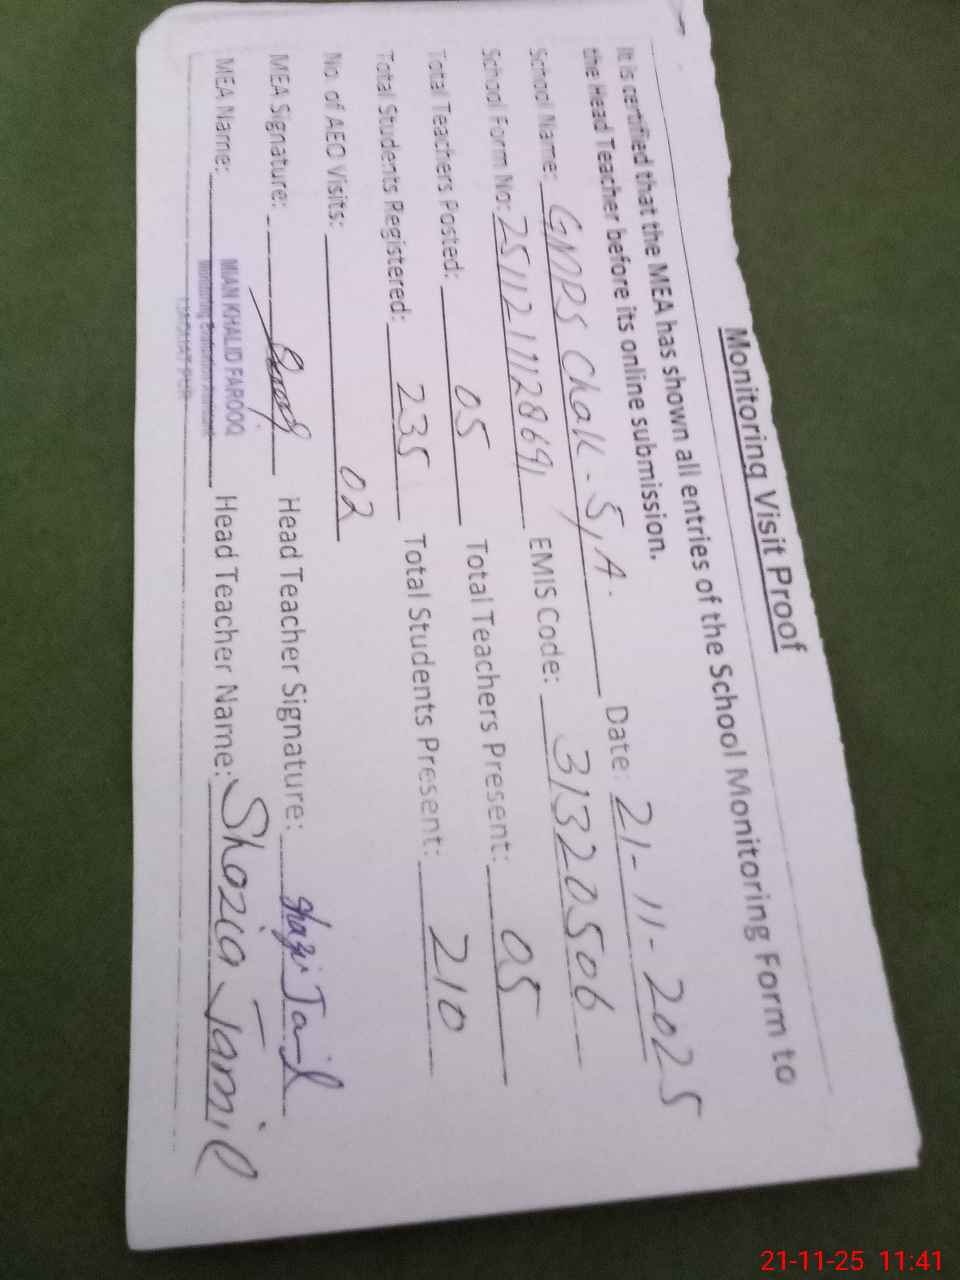 Monitoring Visit Proof
It is certified that the MEA has shown all entries of the School Monitoring Form to
the Head Teacher before its online submission.
School Name: GMPS Chak-5/A. Date: 21-11-2025
School Form No: 2511211128691 EMIS Code: 31320506
Total Teachers Posted: 05 Total Teachers Present: 05
Total Students Registered: 235 Total Students Present: 210
No of AEO Visits: 02
MEA Signature: Head Teacher Signature:
MEA Name: MIAN KHALID FAROOQ Head Teacher Name: Shazia Jamil
Monitoring Evaluation Assistant
21-11-25 11:41